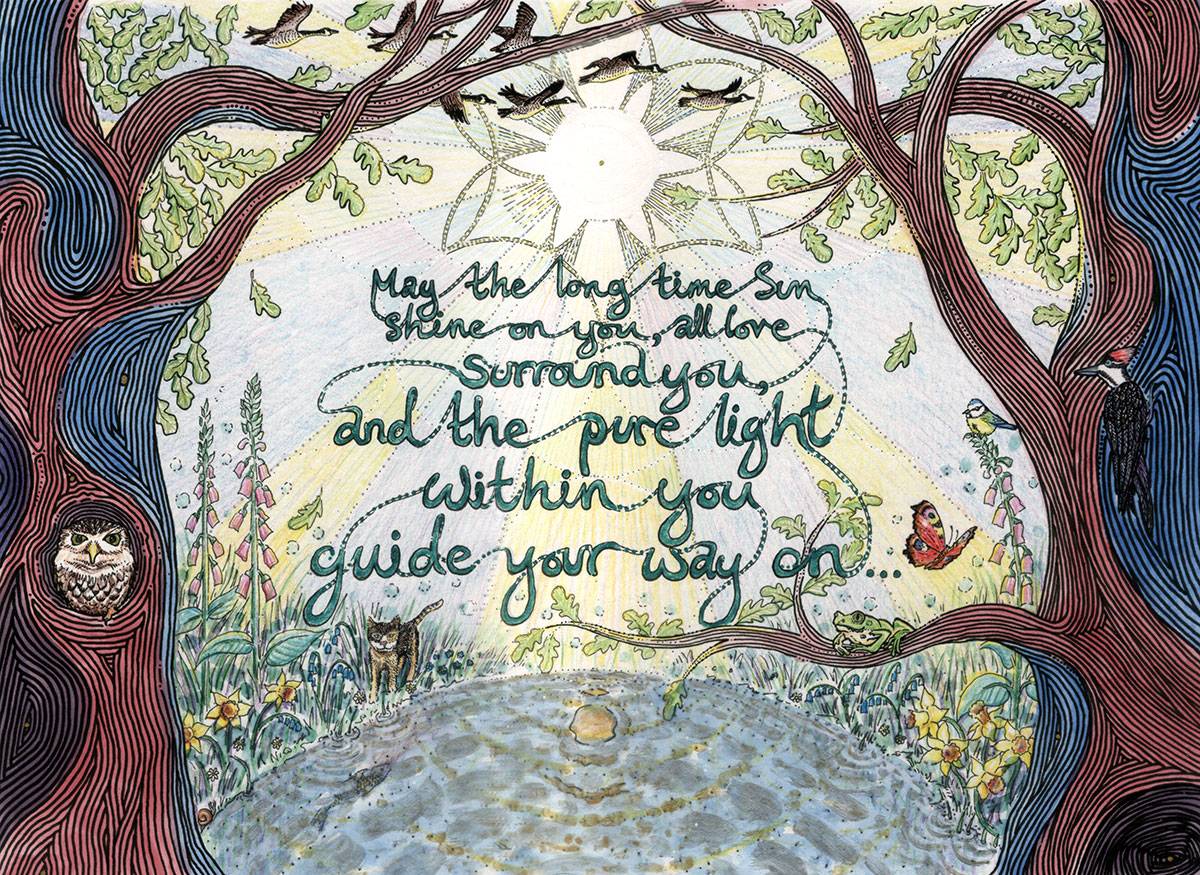 May the long time Sun
Shine on you, all love
Surround you,
and the pure light
within you
guide your way on...